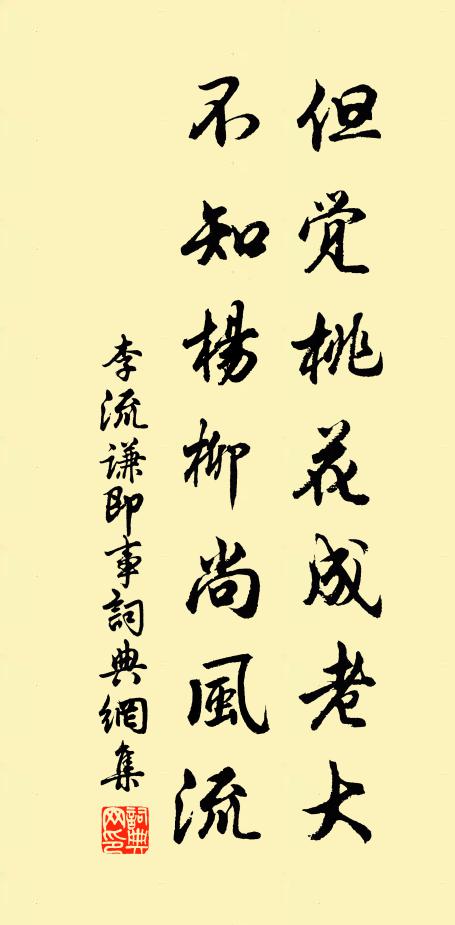 但觉桃花成老大
不知楊柳尚風流
李流谦即事詞典網集
詞典网印